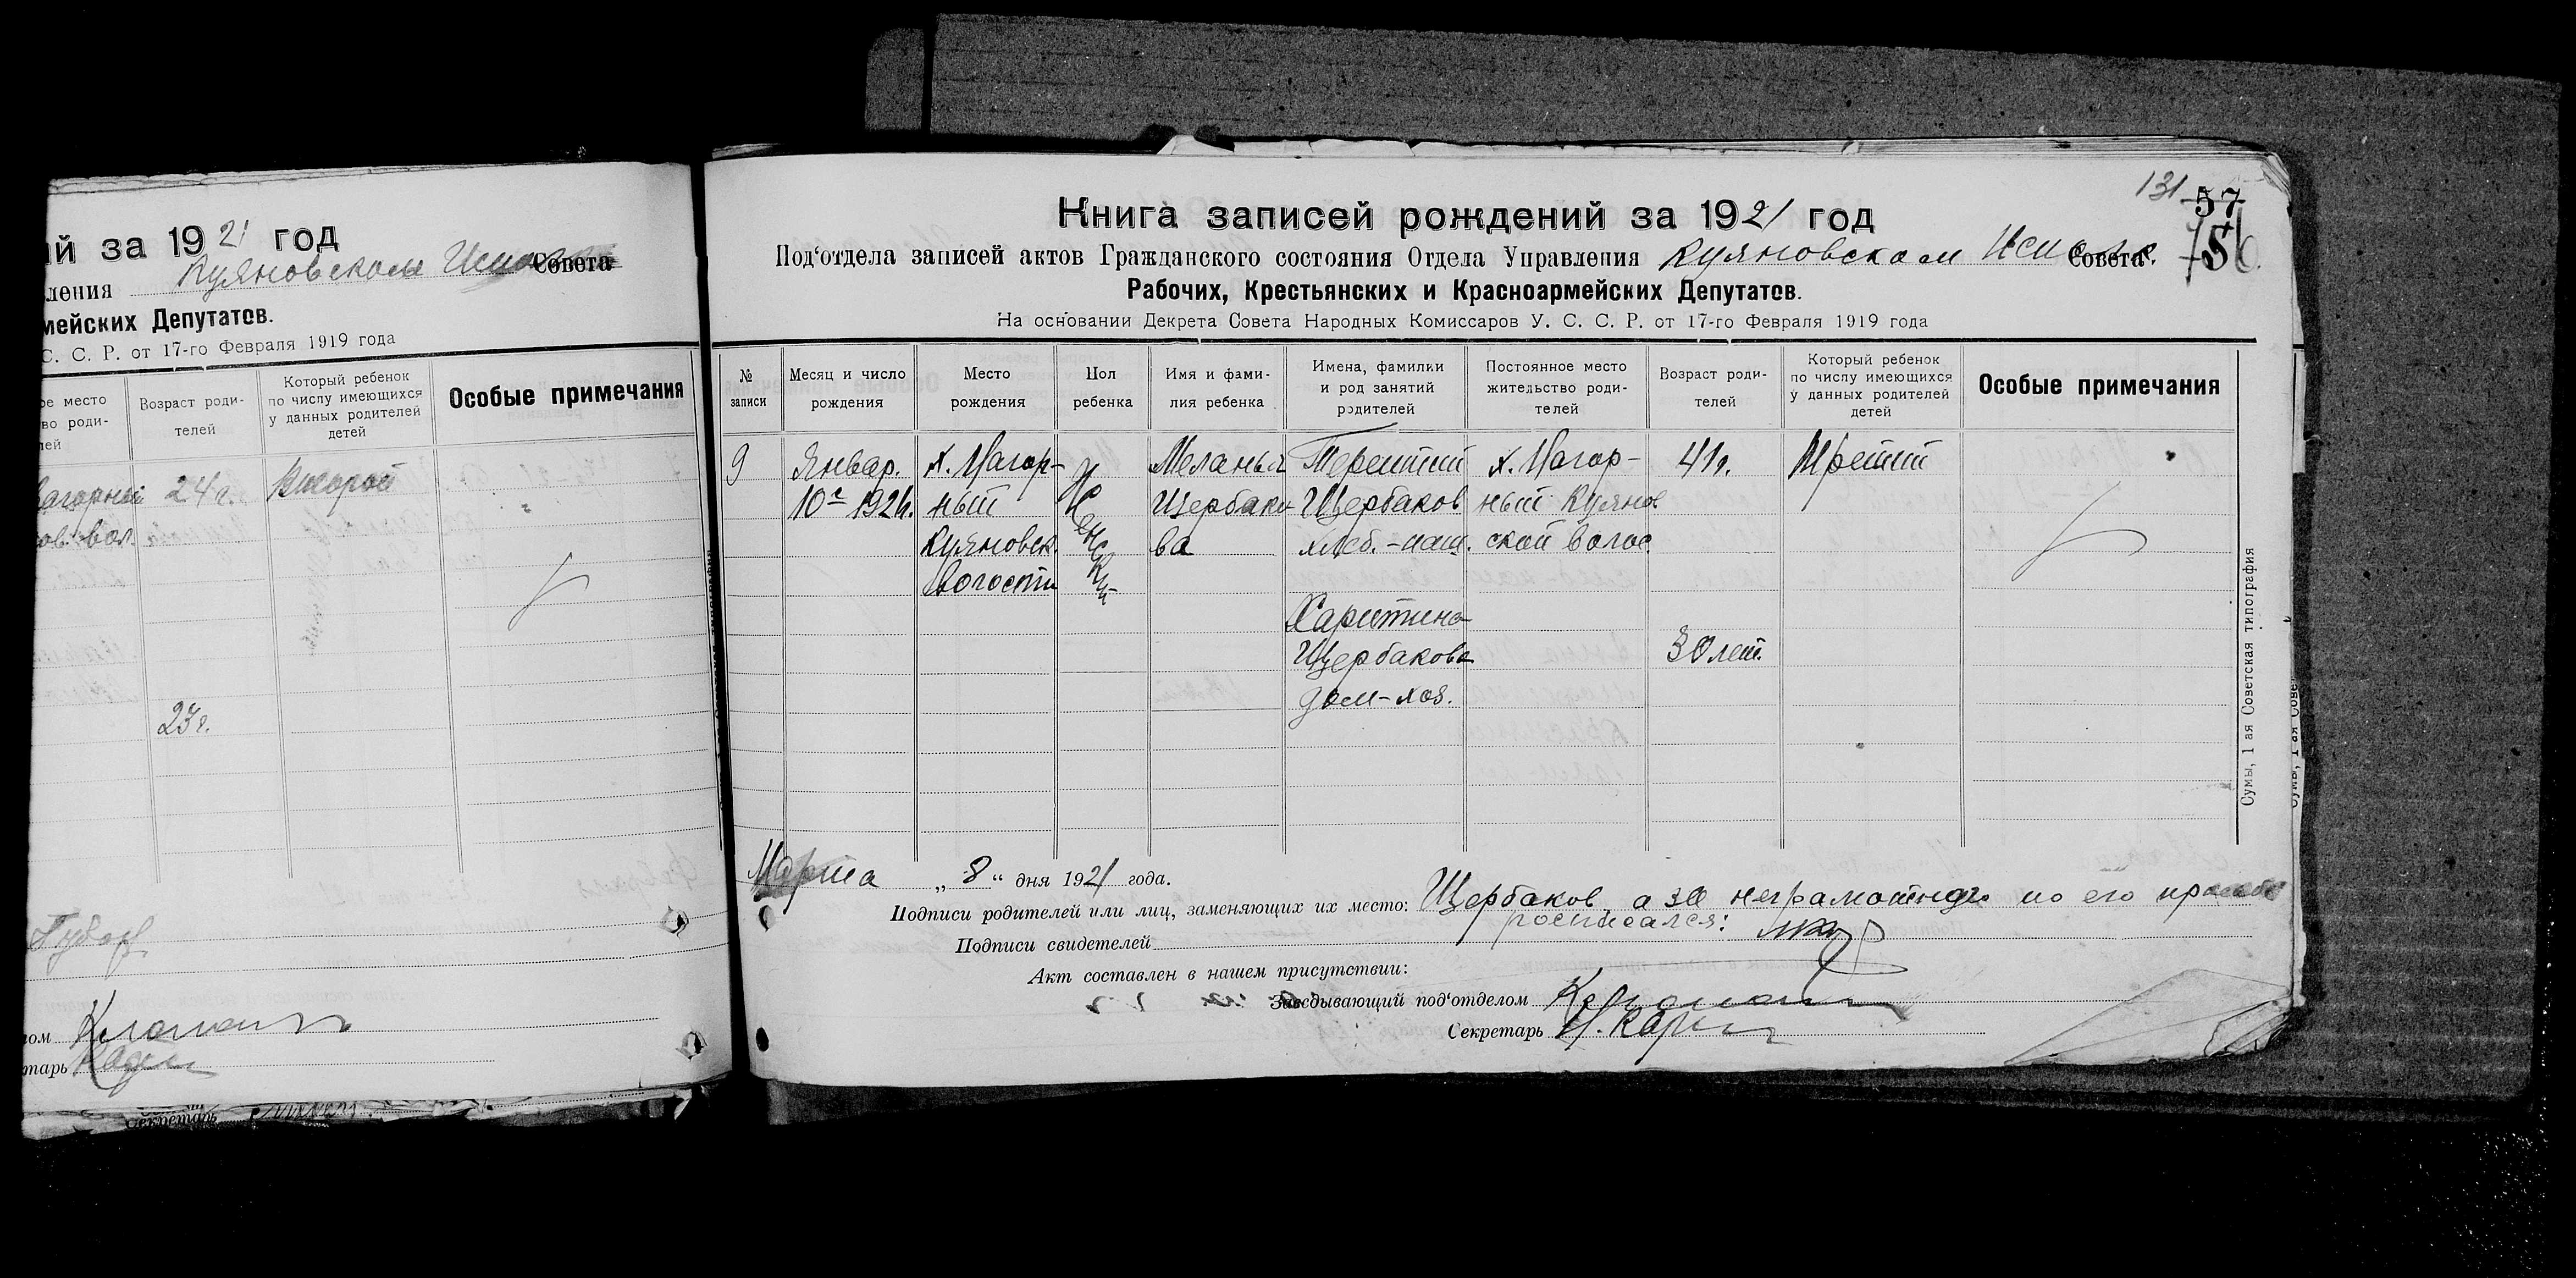 ий за 1921 год
Куяновском Испол Совета
ления
мейских Депутатов.
С. С. Р. от 17-го Февраля 1919 года
ое место
во роди-
лей
Возраст роди-
телей
Который ребенок
по числу имеющихся
у данных родителей
детей
Особые примечания
Нагорный 24 г. Второй
ов. вол.
23 г.
Губарь
ом
тарь
Секретарь
131 57
156
Книга записей рождений за 1921 год
Под‘отдела записей актов Гражданского состояния Отдела Управления Куяновском Исполк Совета.
Рабочих, Крестьянских и Красноармейских Депутатов.
На основании Декрета Совета Народных Комиссаров У. С. С. Р. от 17-го Февраля 1919 года
№
записи
Месяц и число
рождения
Место
рождения
Пол
ребенка
Имя и фами-
лия ребенка
Имена, фамилки
и род занятий
родителей
Постоянное место
жительство роди-
телей
Возраст роди-
телей
Который ребенок
по числу имеющихся
у данных родителей
детей
Особые примечания
9
Январ.
10го 1921г.
х. Нагор-
ный
Куяновск.
волости
Женский
Меланья
Щербако
ва
Терентий
Щербаков
хлеб.-паш.
Харитина
Щербакова
дом-хоз.
х. Нагор-
ный Куянов
ской волос.
41 г.
30 лет.
Третий
Сумы, 1 ая Советская типография
Марта „ 8 “ дня 1921 года.
Подписи родителей или лиц, заменяющих их место: Щербаков, а за неграмотного по его просьбе
росписался:
Подписи свидетелей
Акт составлен в нашем присутствии:
Заведывающий под‘отделом
Секретарь